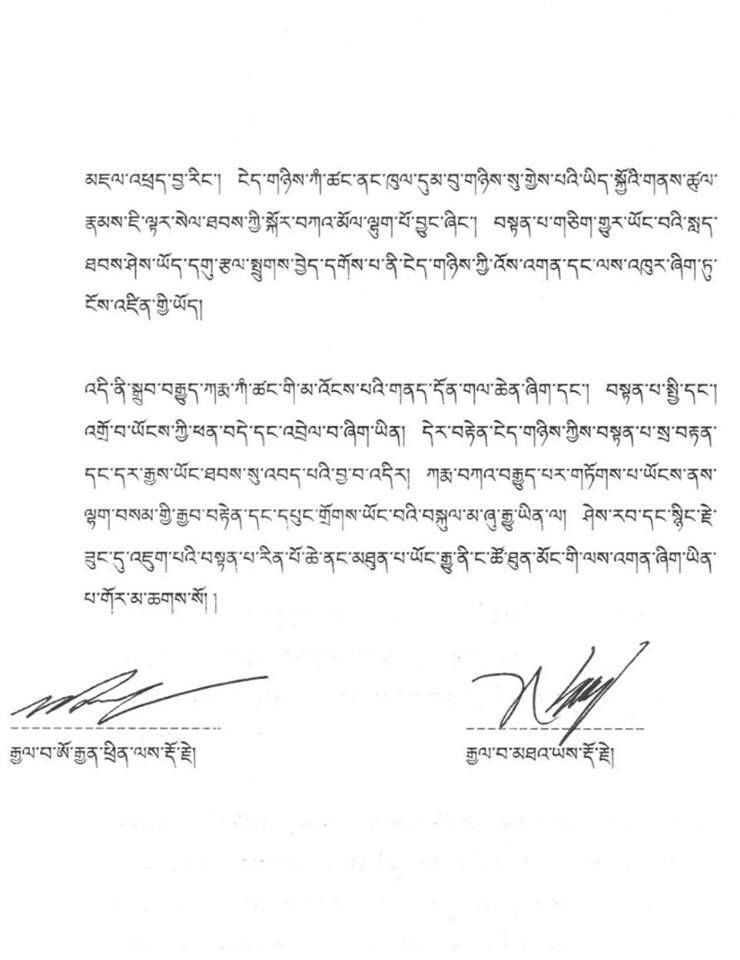 མཇལ་འཕྲད་བྱ་རིང་། ངེད་གཉིས་ཀཾ་ཚང་ནང་ཁུལ་དུམ་བུ་གཉིས་སུ་གྱེས་པའི་ཡིད་སྐྱོའི་གནས་ཚུལ་
རྣམས་ཇི་ལྟར་སེལ་ཐབས་ཀྱི་སྐོར་བཀའ་མོལ་ལྷུག་པོ་བྱུང་ཞིང་། བསྟན་པ་གཅིག་གྱུར་ཡོང་བའི་སླད་
ཐབས་ཤེས་ཡོད་དགུ་རྩལ་སྤྲུགས་བྱེད་དགོས་པ་ནི་ངེད་གཉིས་ཀྱི་འོས་འགན་དང་ལས་འཁུར་ཞིག་ཏུ་
ངོས་འཛིན་གྱི་ཡོད།
འདི་ནི་སྒྲུབ་བརྒྱུད་ཀརྨ་ཀཾ་ཚང་གི་མ་འོངས་པའི་གནད་དོན་གལ་ཆེན་ཞིག་དང་། བསྟན་པ་སྤྱི་དང་།
འགྲོ་བ་ཡོངས་ཀྱི་ཕན་བདེ་དང་འབྲེལ་བ་ཞིག་ཡིན། དེར་བརྟེན་ངེད་གཉིས་ཀྱིས་བསྟན་པ་སྲ་བརྟན་
དང་དར་རྒྱས་ཡོང་ཐབས་སུ་འབད་པའི་བྱ་བ་འདིར། ཀརྨ་བཀའ་བརྒྱུད་པར་གཏོགས་པ་ཡོངས་ནས་
ལྷག་བསམ་གྱི་རྒྱབ་བརྟེན་དང་དཔུང་གྲོགས་ཡོང་བའི་བསྐུལ་མ་ཞུ་རྒྱུ་ཡིན་ལ། ཤེས་རབ་དང་སྙིང་རྗེ་
ཟུང་དུ་འཇུག་པའི་བསྟན་པ་རིན་པོ་ཆེ་ནང་མཐུན་པ་ཡོང་རྒྱུ་ནི་ང་ཚོ་ཐུན་མོང་གི་ལས་འགན་ཞིག་ཡིན་
པ་གོར་མ་ཆགས་སོ། །
རྒྱལ་བ་ཨོ་རྒྱན་ཕྲིན་ལས་རྡོ་རྗེ། རྒྱལ་བ་མཐའ་ཡས་རྡོ་རྗེ།